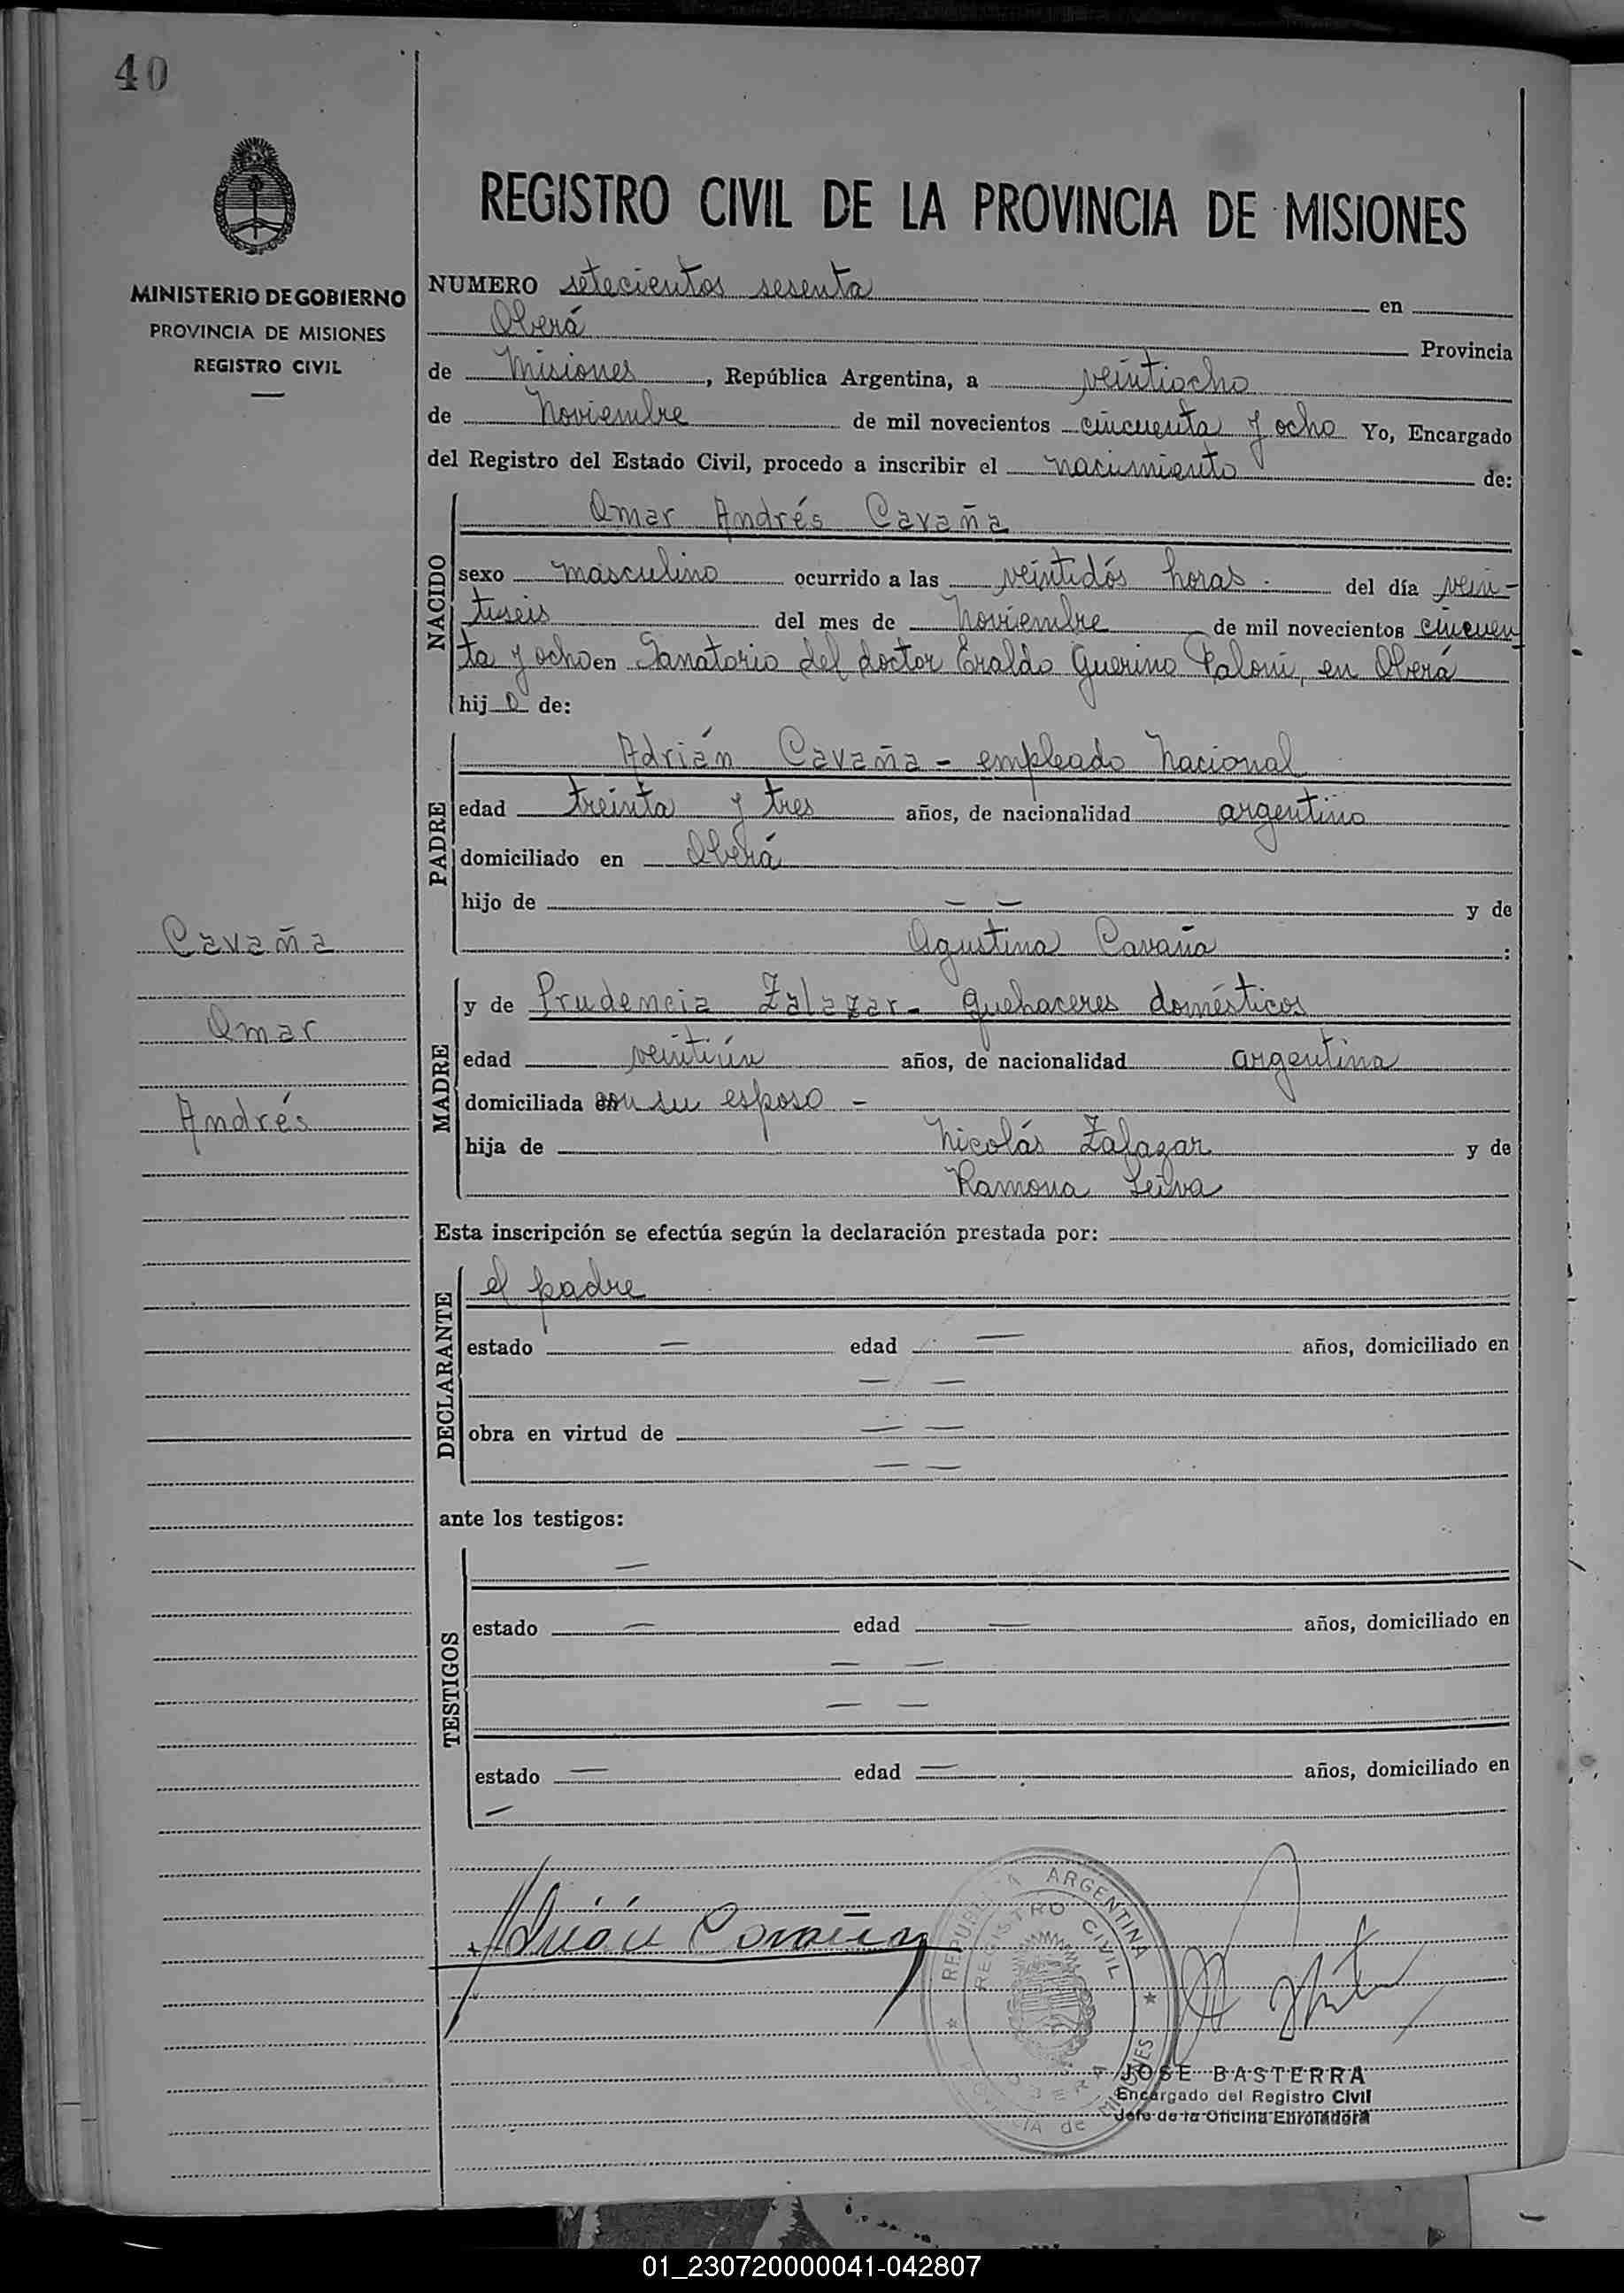 40
MINISTERIO DE GOBIERNO
PROVINCIA DE MISIONES
REGISTRO CIVIL
REGISTRO CIVIL DE LA PROVINCIA DE MISIONES
NUMERO setecientos sesenta en
Oberá Provincia
de Misiones, República Argentina, a veintiocho
de Noviembre de mil novecientos cincuenta y ocho Yo, Encargado
del Registro del Estado Civil, procedo a inscribir el nacimiento de:
NACIDO
Omar Andrés Cavaña
sexo masculino ocurrido a las veintidós horas. del día vein-
tiseis del mes de Noviembre de mil novecientos cincuen
ta y ocho en Sanatorio del doctor Eraldo Guerino Paloni, en Oberá
hijo de:
PADRE
Adrián Cavaña - empleado Nacional
edad treinta y tres años, de nacionalidad argentino
domiciliado en Oberá
hijo de — — y de
Agustina Cavaña :
MADRE
y de Prudencia Zalazar - Quehaceres domésticos
edad veintiún años, de nacionalidad argentina
domiciliada con su esposo -
hija de Nicolás Zalazar y de
Ramona Leiva
Cavaña
Omar
Andrés
Esta inscripción se efectúa según la declaración prestada por:
DECLARANTE
el padre
estado — edad — años, domiciliado en
— —
obra en virtud de — —
— —
ante los testigos:
TESTIGOS
—
estado — edad — años, domiciliado en
— —
— —
estado — edad — años, domiciliado en
—
Adrián Cavaña
REPUBLICA ARGENTINA
REGISTRO CIVIL
OBERA
PROVINCIA de MISIONES
JOSE BASTERRA
Encargado del Registro Civil
Jefe de la Oficina Enroladora
01_230720000041-042807